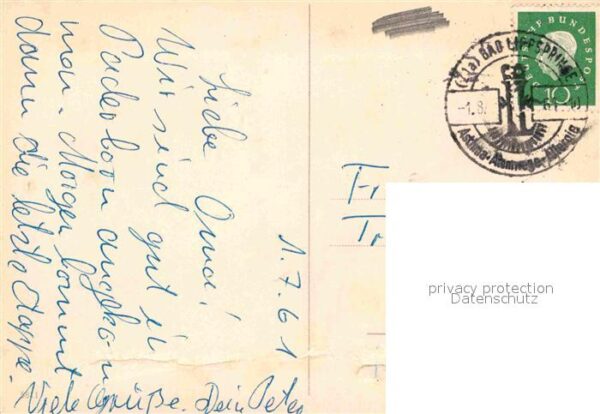 1.7.61
Liebe Oma!
Wir sind gut in
Paderborn angekom
men. Morgen kommt
dann die letzte Etappe.
Viele Grüße. Dein Peter
Fr
BUNDESPO
10
BAD LIPPSPRINGE
-1.8.
Asthma-Atemwege-Allergie
privacy protection
Datenschutz